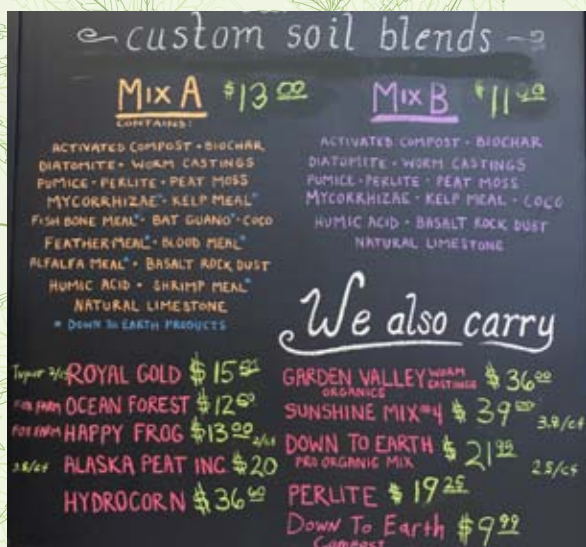 custom soil blends
MIX A $13.00
CONTAINS:
ACTIVATED COMPOST • BIOCHAR
DIATOMITE • WORM CASTINGS
PUMICE • PERLITE • PEAT MOSS
MYCORRHIZAE • KELP MEAL*
FISH BONE MEAL* • BAT GUANO* • COCO
FEATHER MEAL* • BLOOD MEAL*
ALFALFA MEAL* • BASALT ROCK DUST
HUMIC ACID • SHRIMP MEAL*
NATURAL LIMESTONE
* DOWN TO EARTH PRODUCTS
MIX B $11
ACTIVATED COMPOST • BIOCHAR
DIATOMITE • WORM CASTINGS
PUMICE • PERLITE • PEAT MOSS
MYCORRHIZAE • KELP MEAL • COCO
HUMIC ACID • BASALT ROCK DUST
NATURAL LIMESTONE
We also carry
ROYAL GOLD $15
FOX FARM OCEAN FOREST $12
FOX FARM HAPPY FROG $13.00 2/cf
3.8/cf ALASKA PEAT INC $20
HYDROCORN $36
GARDEN VALLEY ORGANICS WORM CASTINGS $36.00
SUNSHINE MIX #4 $39 3.8/cf
DOWN TO EARTH PRO ORGANIC MIX $21.99 2.5/cf
PERLITE $19.25
Down To Earth Compost $9.99